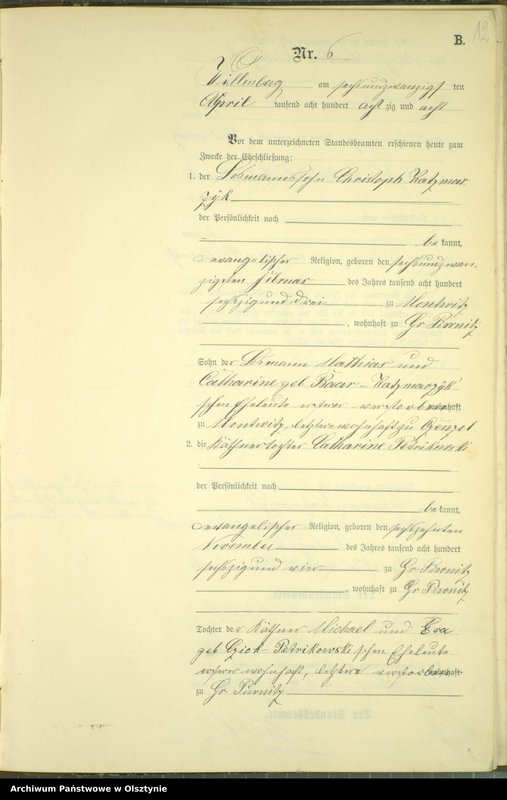 12
B.
Nr. 6
Willenberg am sechsundzwanzigsten
April tausend acht hundert achtzig und acht
Vor dem unterzeichneten Standesbeamten erschienen heute zum
Zwecke der Eheschließung:
1. der Losmannssohn Christoph Katzmar
zÿk
der Persönlichkeit nach
bekannt,
evangelischer Religion, geboren den sechsundzwan
zigsten Februar des Jahres tausend acht hundert
sechszig und drei zu Montwitz
, wohnhaft zu Gr Piwnitz
Sohn der Losmann Mathias und
Catharine geb Baar - Katzmarzÿk
schen Eheleute ersterer verstorben wohnhaft
zu Montwitz, letztere wohnhaft zu
2. die Käthnertochter Catharine Petrikowski
der Persönlichkeit nach
bekannt,
evangelischer Religion, geboren den sechszehnten
November des Jahres tausend acht hundert
sechszig und vier zu Gr Piwnitz
, wohnhaft zu Gr Piwnitz
Tochter der Käthner Michael und Eva
geb Petrikowski'schen Eheleute
ersterer wohnhaft, letztere verstorben wohnhaft
zu Gr Piwnitz
Archiwum Państwowe w Olsztynie